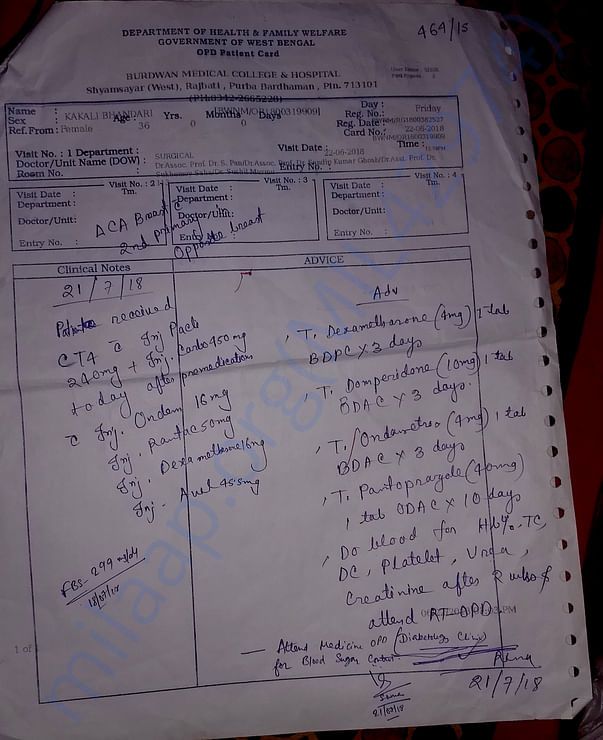 464/15
DEPARTMENT OF HEALTH & FAMILY WELFARE
GOVERNMENT OF WEST BENGAL
OPD Patient Card
BURDWAN MEDICAL COLLEGE & HOSPITAL
Shyamsayar (West), Rajbati, Purba Bardhaman, Pin. 713101
(PH:0342-2665220)
Name : KAKALI BHANDARI
Sex : Female Age : 36 Yrs. 0 Months 0 Days
Ref. From :
Day : Friday
Reg. No. :
Reg. Date : 22-06-2018
Card No. :
Time :
Visit No. : 1 Department : SURGICAL 22-06-2018
Doctor/Unit Name (DOW) :
Room No. : Entry No. :
Visit No. : 2 Visit No. : 3 Visit No. : 4
Visit Date : Tm. Visit Date : Tm. Visit Date : Tm.
Department : Department : Department :
Doctor/Unit: Doctor/Unit: Doctor/Unit:
Entry No. : Entry No. : Entry No. :
ACA Breast c
2nd primary in
Opposite breast
Clinical Notes ADVICE
21/7/18
Patient received
CT4 c Inj Pacli
240mg + Inj. Carbo 450 mg
today after premedications
c Inj. Ondam 16mg
Inj. Rantac 50mg
Inj. Dexamethasone 16mg
Inj. Avil 45.5mg
FBS- 299 mg/dl
18/07/18
Adv
, T. Dexamethasone (4mg) 1 tab
BDPC X 3 days
, T. Domperidone (10mg) 1 tab
BDAC X 3 days.
, T. Ondansetron (4mg) 1 tab
BDAC X 3 days
, T. Pantoprazole (40mg)
1 tab ODAC X 10 days
, Do blood for Hb%, TC,
DC, Platelet, Urea,
Creatinine after 2 wks &
attend RT OPD
— Attend Medicine OPD (Diabetology Clinic)
for Blood Sugar Control
21/07/18
21/7/18
1 of
milaap.org